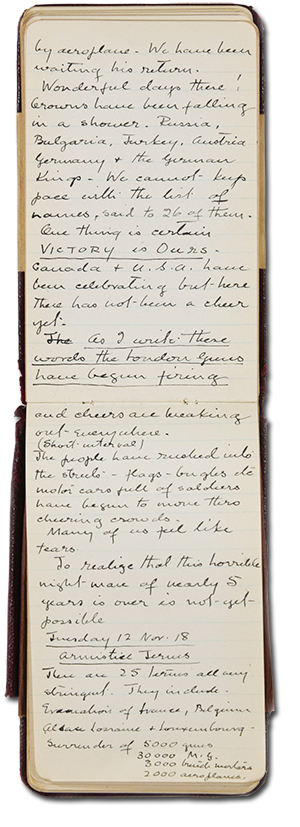 by aeroplane. We have been
waiting his return.
Wonderful days these!
Crowns have been falling
in a shower. Russia,
Bulgaria, Turkey, Austria
Germany & the German
Kings. We cannot keep
pace with the list of
names, said to 26 of them.
One thing is certain
VICTORY is OURS.
Canada & U.S.A. have
been celebrating but here
there has not been a cheer
yet.
The As I write these
words the London Guns
have begun firing
and cheers are breaking
out everywhere.
(Short interval)
The people have rushed into
the streets - flags - bugles etc
motor cars full of soldiers
have begun to move thro
cheering crowds.
Many of us feel like
tears
To realize that this horrible
night-mare of nearly 5
years is over is not-yet-
possible
Tuesday 12 Nov. 18
Armistice Terms
There are 25 terms all very
stringent. They include.
Evacuation of France, Belgium
Alsace Lorraine & Luxembourg-
Surrender of 5000 guns
30000 M.G.
3000 trench mortars
2000 aeroplanes.